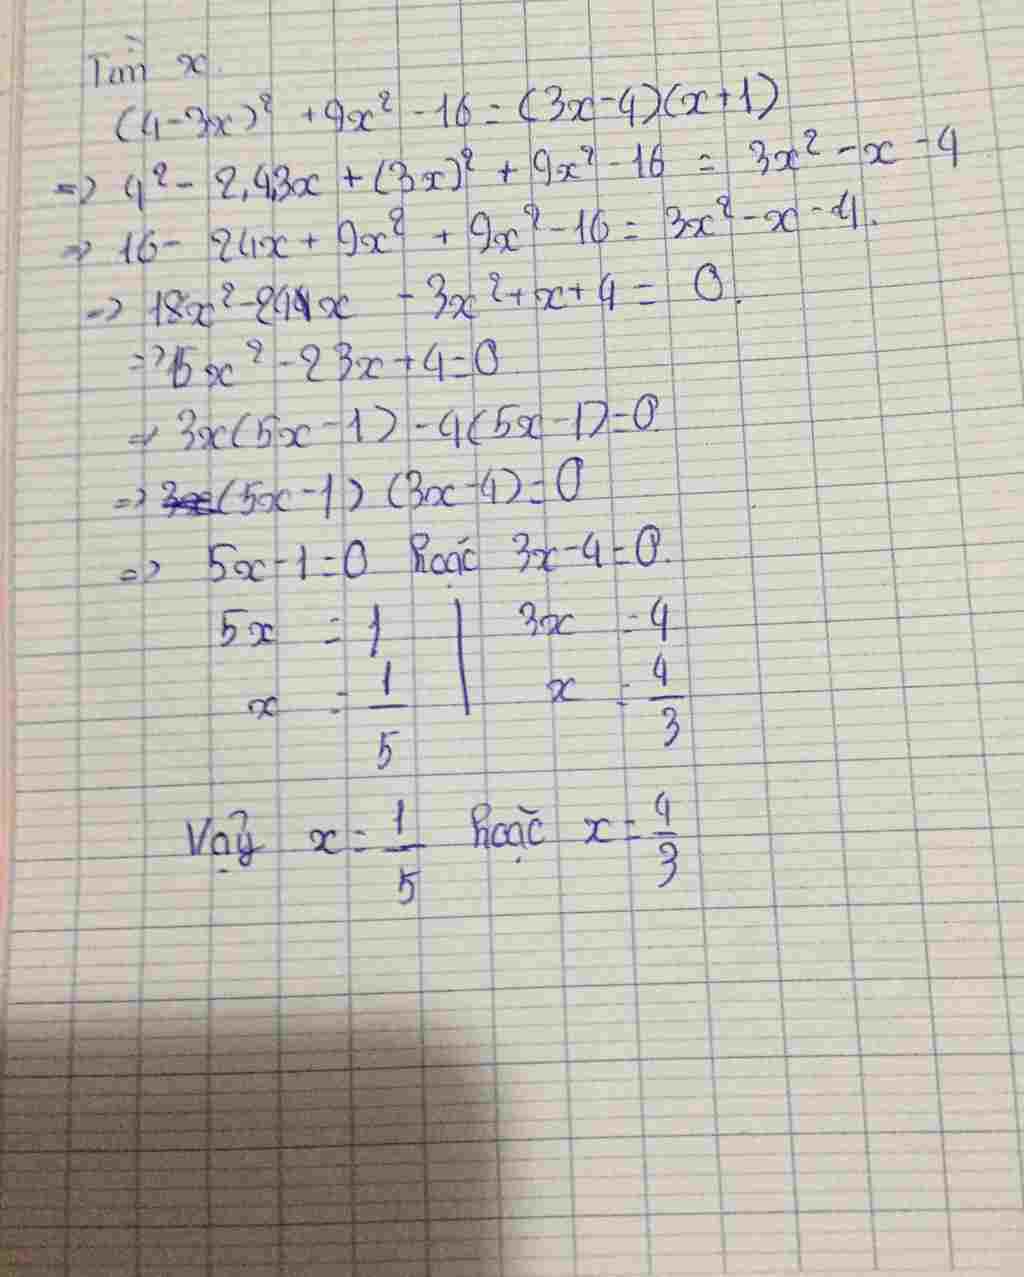 Tìm x.
(4-3x)² + 9x² - 16 = (3x-4)(x+1)
=> 4² - 2.4.3x + (3x)² + 9x² - 16 = 3x² - x - 4
=> 16 - 24x + 9x² + 9x² - 16 = 3x² - x - 4.
=> 18x² - 24x - 3x² + x + 4 = 0.
=> 15x² - 23x + 4 = 0
=> 3x(5x-1) - 4(5x-1) = 0
=> (5x-1)(3x-4) = 0
=> 5x-1=0 hoặc 3x-4=0.
5x = 1 | 3x = 4
x = 1/5 | x = 4/3
Vậy x = 1/5 hoặc x = 4/3